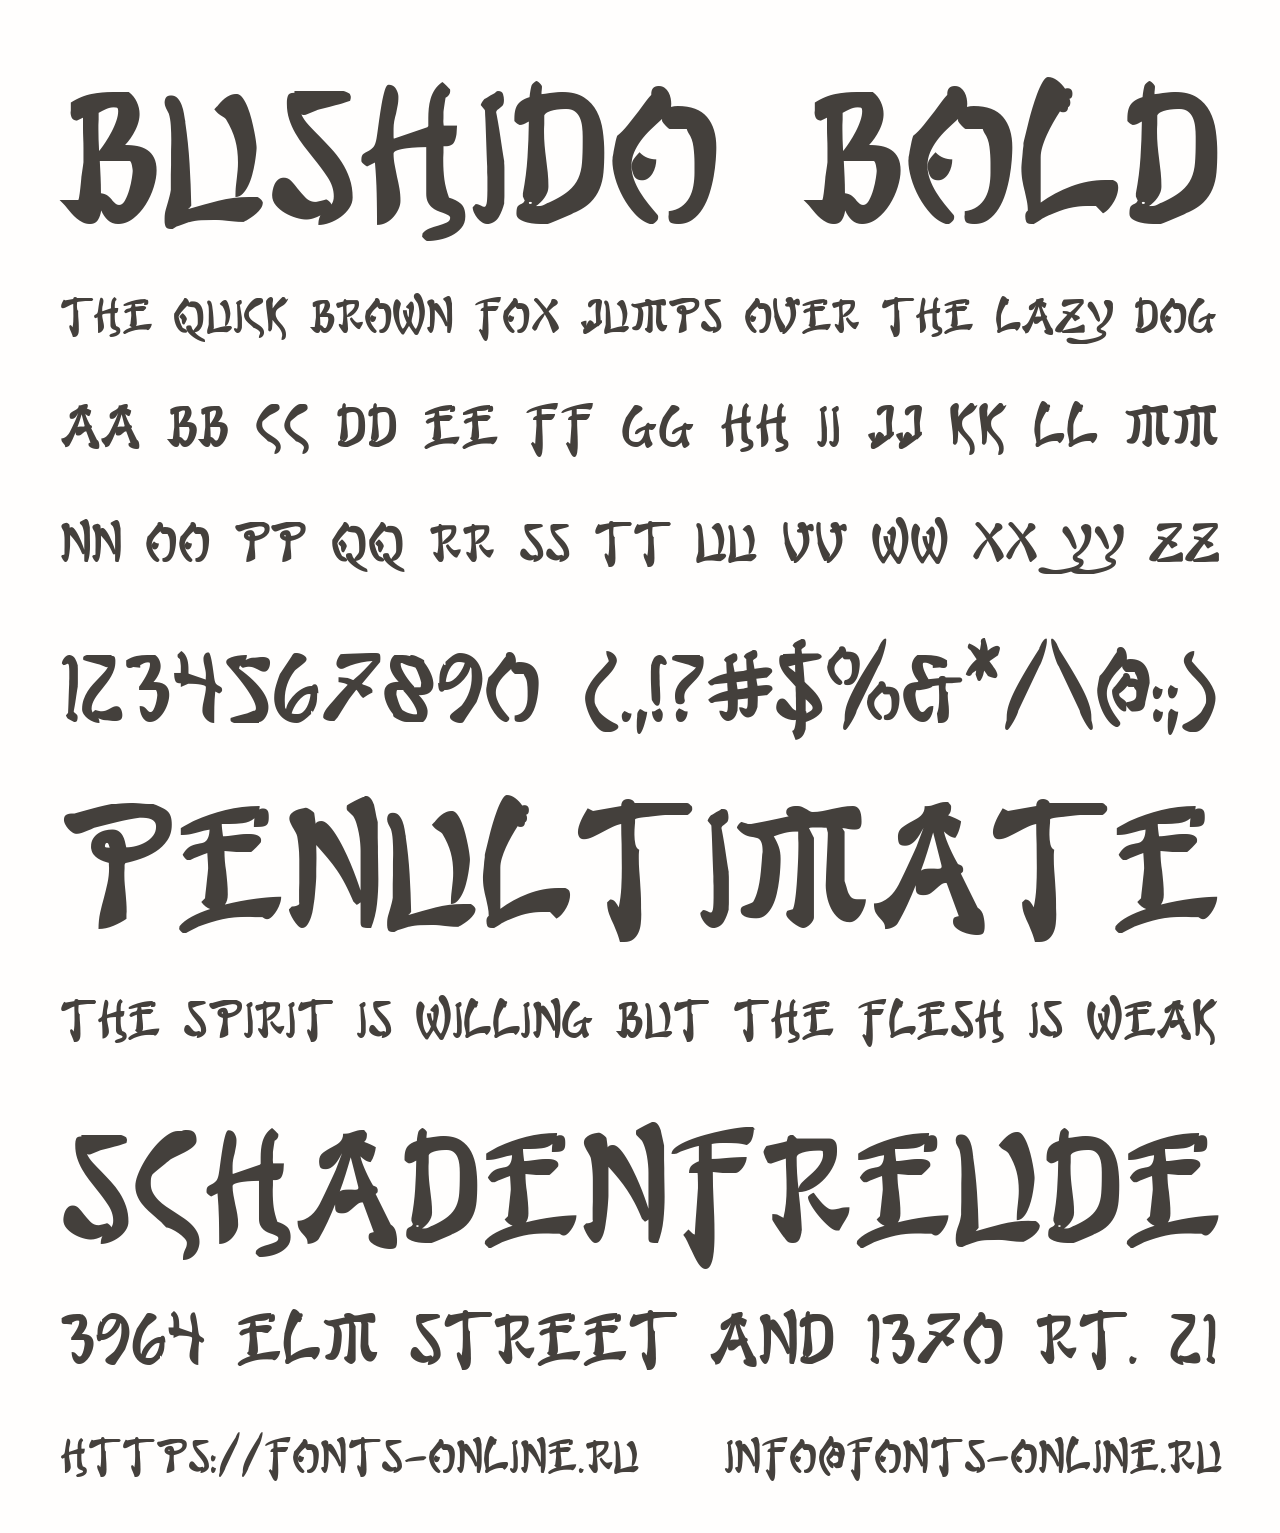 BUSHIDO BOLD
THE QUICK BROWN FOX JUMPS OVER THE LAZY DOG
AA BB CC DD EE FF GG HH II JJ KK LL MM
NN OO PP QQ RR SS TT UU VV WW XX YY ZZ
1234567890 (.,!?#$%&*/\@:;)
PENULTIMATE
THE SPIRIT IS WILLING BUT THE FLESH IS WEAK
SCHADENFREUDE
3964 ELM STREET AND 1370 RT. 21
HTTPS://FONTS-ONLINE.RU INFO@FONTS-ONLINE.RU